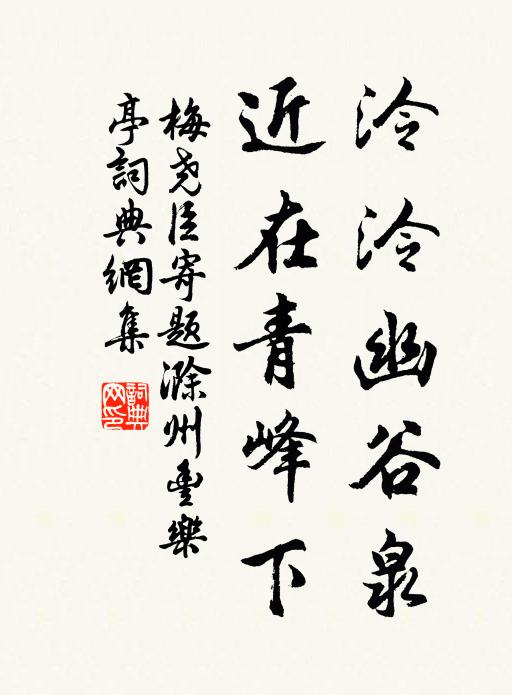 泠泠幽谷泉
近在青峰下
梅尧臣寄题滁州豐樂
亭詞典網集
詞典網印